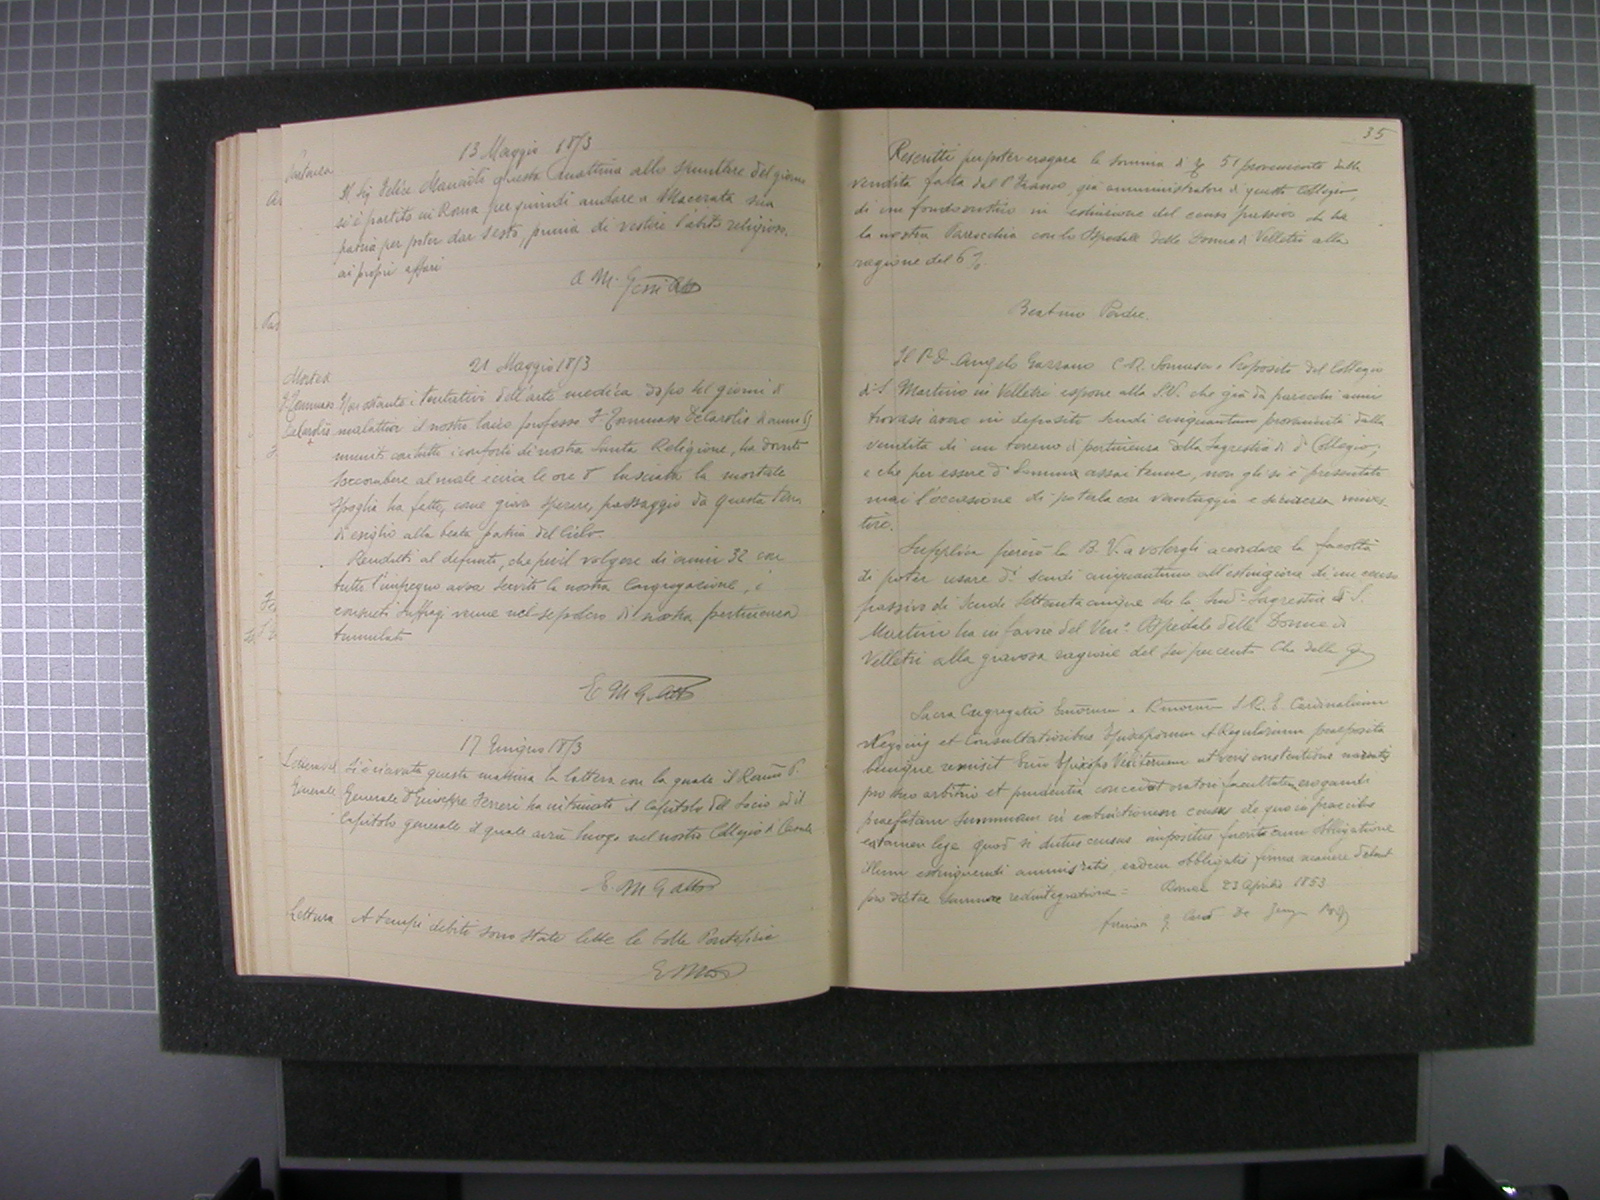 13 Maggio 1853
Partenza Il Sig Felice questa mattina allo spuntare del giorno
si è partito in Roma per quindi andare a Macerata sua
patria per poter dar sesto, prima di vestire l'abito religioso,
ai propri affari
21 Maggio 1853
Morte d
F. Tommaso Non ostante i tentativi dell'arte medica dopo sei giorni di
Decarolis malattia il nostro laico professo F. Tommaso Decarolis di anni
munito con tutti i conforti di nostra Santa Religione, ha dovuto
soccombere al male e circa le ore 8 lasciata la mortale
spoglia ha fatto, come giova sperare, passaggio da questa terra
di esiglio alla beata patria del Cielo.
Renduti al defunto, che pel volgere di anni 32 con
tutto l'impegno avea servito la nostra Congregazione, i
consueti suffragi venne nel sepolcro di nostra pertinenza
tumulato
17 Giugno 1853
Lettera del Si è ricevuta questa mattina la lettera con la quale il Revmo P.
Generale Generale D Giuseppe Ferreri ha intimato il Capitolo del Socio ed il
Capitolo generale il quale avrà luogo nel nostro Collegio di Casale
Lettura A tempi debiti sono state lette le bolle Pontificie
35
Rescritti per poter erogare la somma di 51 proveniente dalla
vendita fatta dal P. già amministratore di questo Collegio,
di un fondo rustico in estinzione del censo passivo che ha
la nostra Parrocchia con lo Ospedale delle Donne di Velletri alla
ragione del 6 %
Beatmo Padre.
Il P. D. Angelo C. R. Somasco e Preposito del Collegio
di S. Martino in Velletri espone alla S.V. che già da parecchi anni
trovasi avere in deposito scudi cinquantuno provenienti dalla
vendita di un terreno di pertinenza della Sagrestia di do Collegio;
e che per essere da Summa assai tenue, non gli si è presentata
mai l'occasione di poterla con vantaggio e sicurezza inves-
tire.
Supplica perciò la B. V. a volergli accordare la facoltà
di poter usare di scudi cinquantuno all'estinzione di un censo
passivo di Scudi settantacinque che la Sud. Sagrestia di S.
Martino ha in favore del Ven. Ospedale delle Donne di
Velletri alla gravosa ragione del sei per cento Che della
Sacra Congregatio Emorum a Rmorum S. R. E. Cardinalium
Negociis et Consultationibus Episcoporum et Regularium praeposita
benigne remisit Emo Episcopo Veliterum ut veris existentibus narratis
pro suo arbitrio et prudentia concedat oratori facultatem erogandi
praefatam summam in extinctionem census de quo in precibus
ea tamen lege quod si dictus census impositus fuerit cum obbligatione
illum extinguendi eadem obbligatio firma manere debeat
pro dictae summae redintegratione = Romae 23 Aprilis 1853